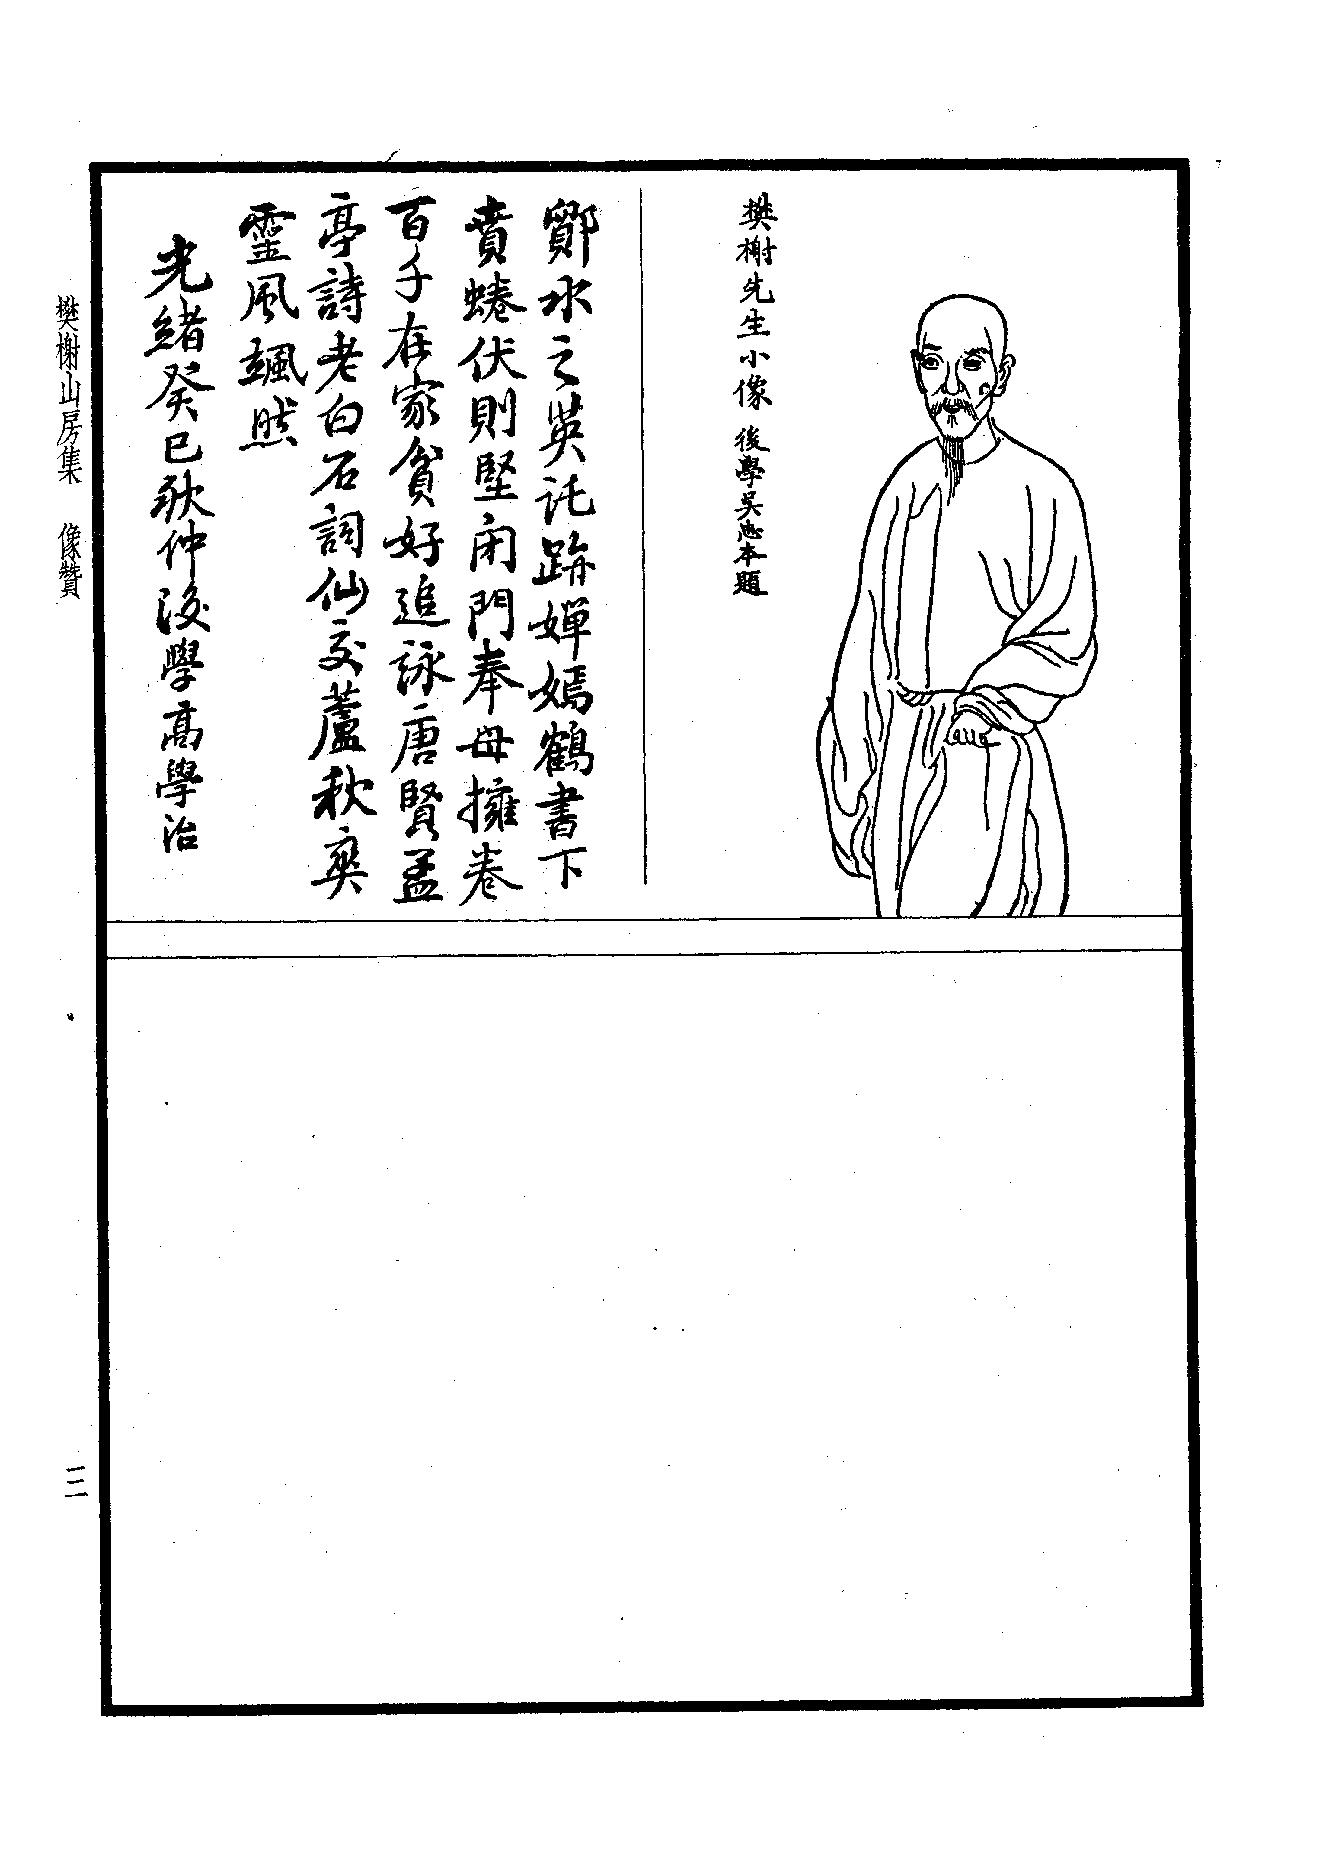 樊榭先生小像 後學吳本題
鄮水之英託跡嬋嫣鶴書下
賁蜷伏則堅閉門奉母擁卷
百千在家貧好追詠唐賢孟
亭詩老白石詞仙交蘆秋爽
靈風颯然
光緒癸巳秋仲後學高學治
樊榭山房集 像贊
三